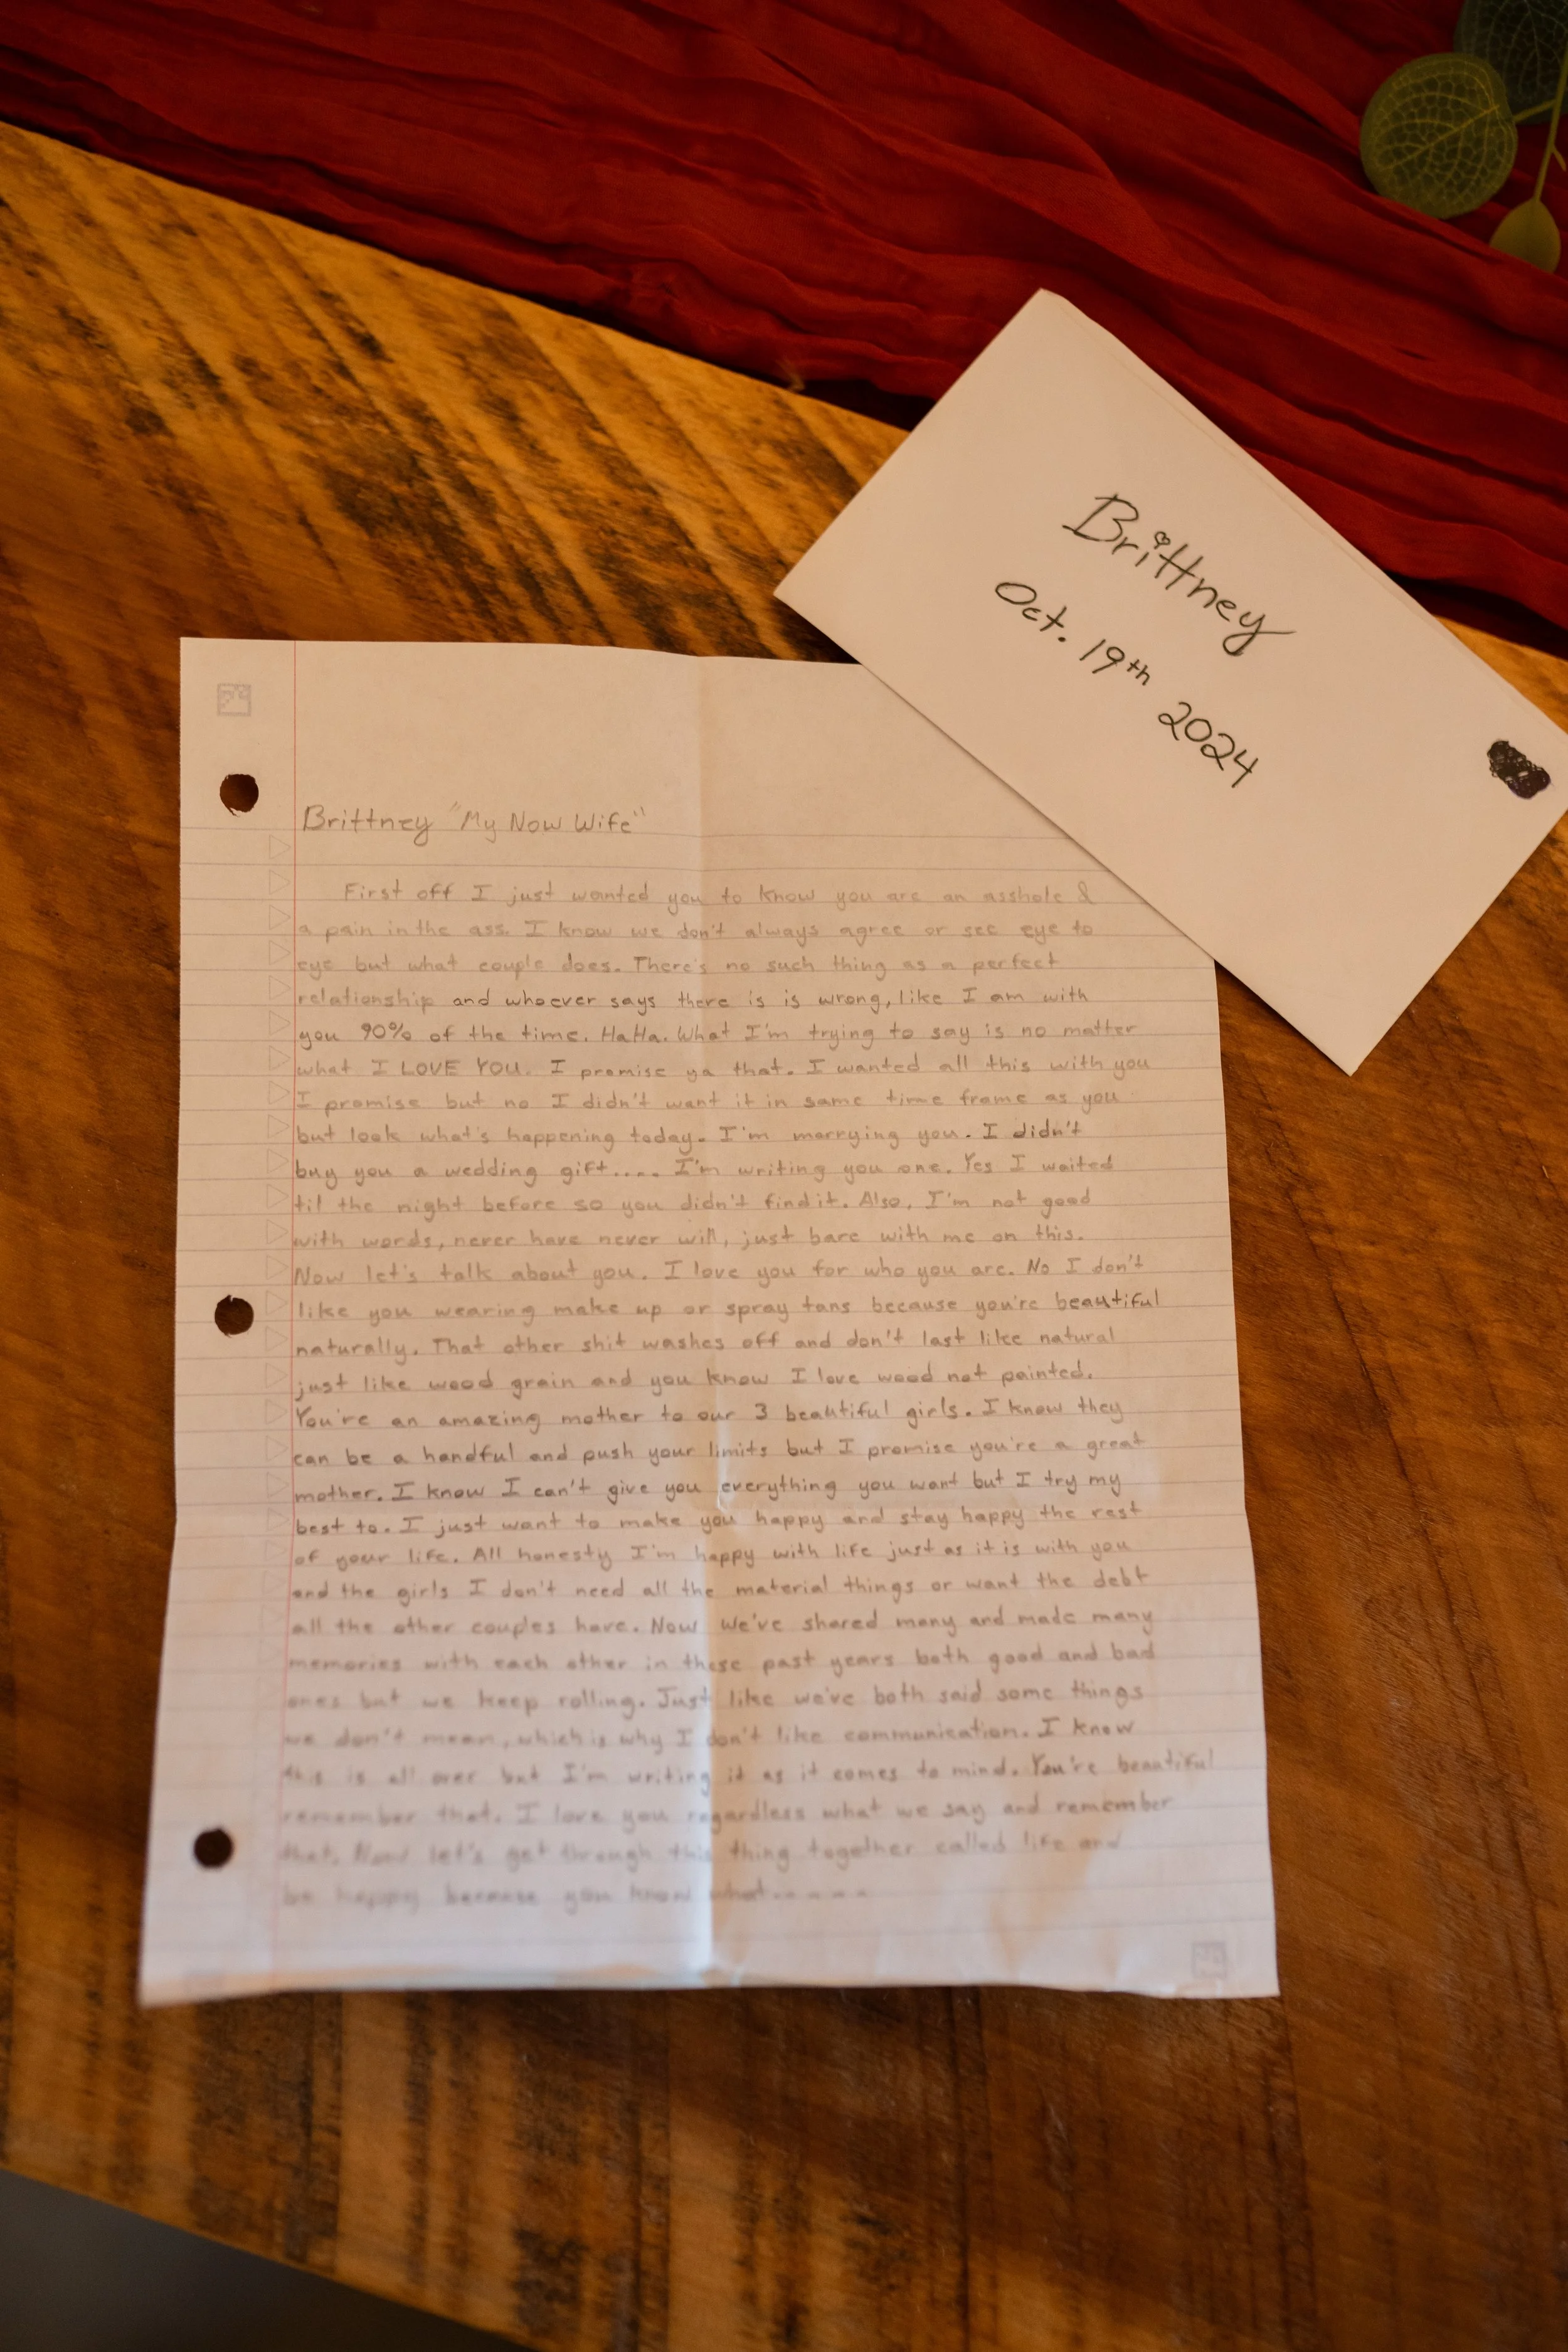 Brittney
Oct. 19th 2024
Brittney "My Now Wife"
First off I just wanted you to know you are an asshole &
a pain in the ass. I know we don't always agree or see eye to
eye but what couple does. There's no such thing as a perfect
relationship and whoever says there is is wrong, like I am with
you 90% of the time. HaHa. What I'm trying to say is no matter
what I LOVE YOU. I promise ya that. I wanted all this with you
I promise but no I didn't want it in same time frame as you
but look what's happening today. I'm marrying you. I didn't
buy you a wedding gift.... I'm writing you one. Yes I waited
til the night before so you didn't find it. Also, I'm not good
with words, never have never will, just bare with me on this.
Now let's talk about you. I love you for who you are. No I don't
like you wearing make up or spray tans because you're beautiful
naturally. That other shit washes off and don't last like natural
just like wood grain and you know I love wood not painted.
You're an amazing mother to our 3 beautiful girls. I know they
can be a handful and push your limits but I promise you're a great
mother. I know I can't give you everything you want but I try my
best to. I just want to make you happy and stay happy the rest
of your life. All honesty I'm happy with life just as it is with you
and the girls I don't need all the material things or want the debt
all the other couples have. Now we've shared many and made many
memories with each other in these past years both good and bad
ones but we keep rolling. Just like we've both said some things
we don't mean, which is why I don't like communication. I know
this is all over but I'm writing it as it comes to mind. You're beautiful
remember that. I love you regardless what we say and remember
that. Now let's get through this thing together called life and
be happy because you know what.....